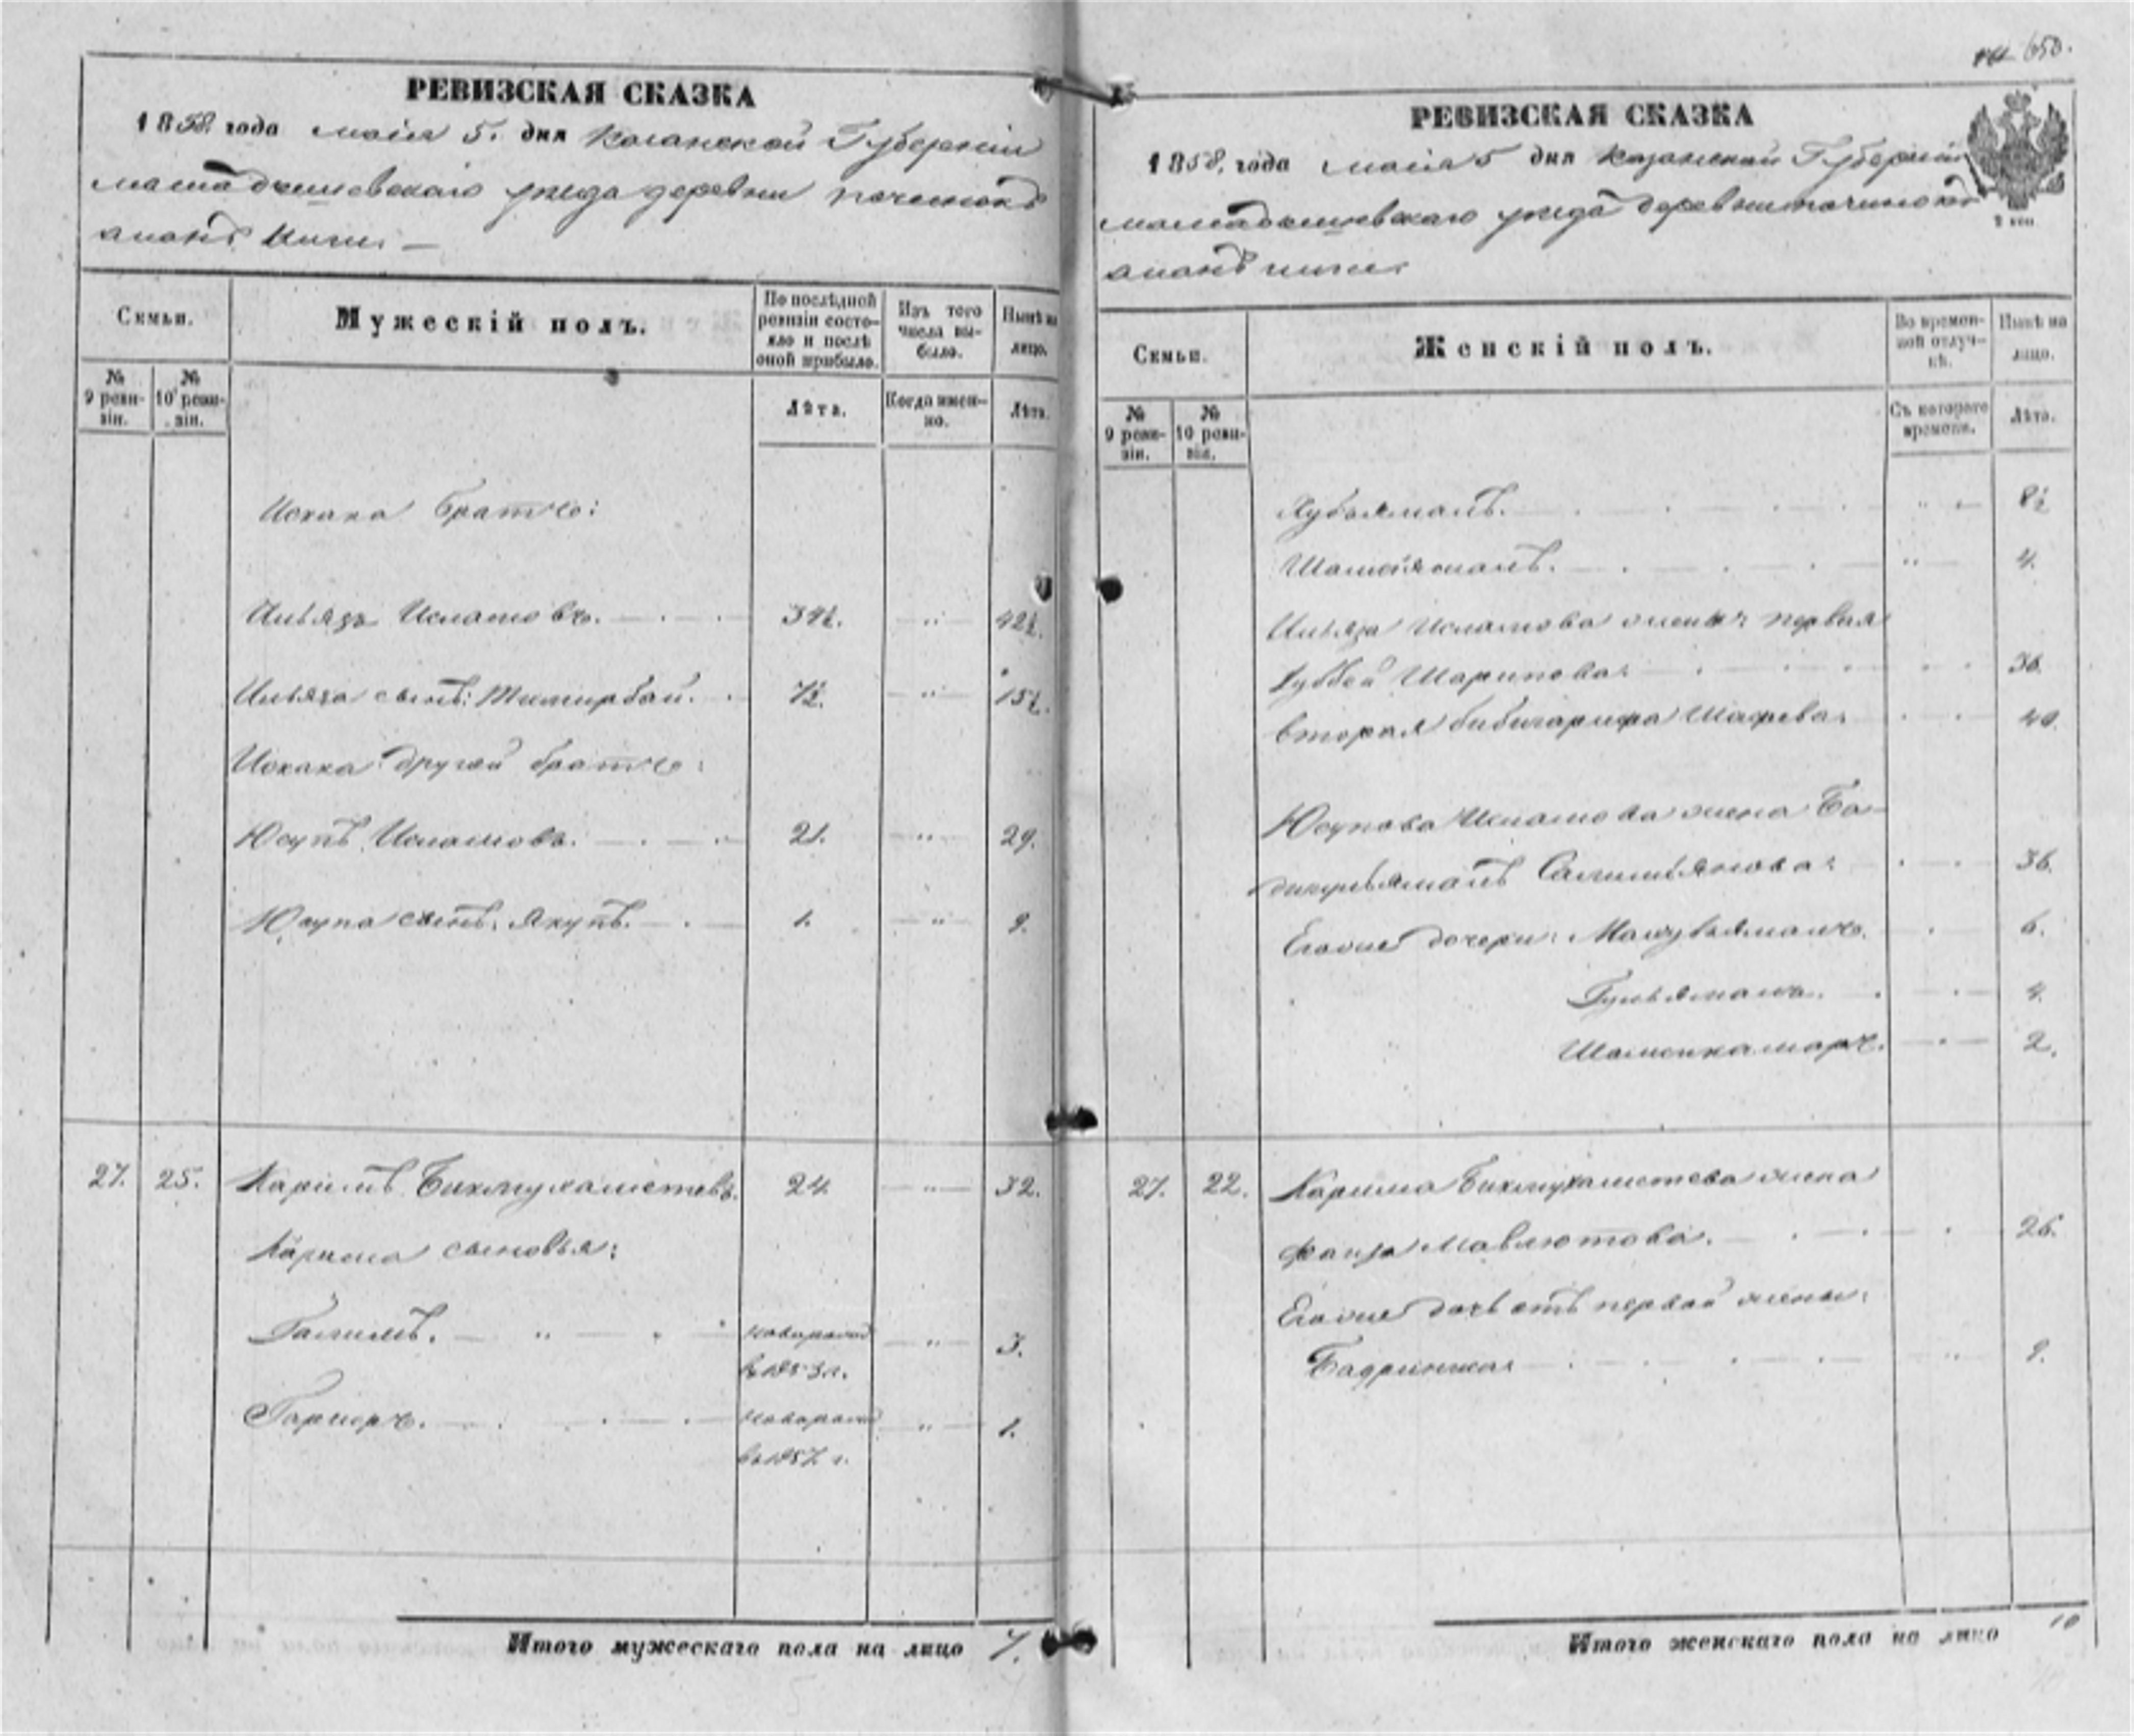 РЕВИЗСКАЯ СКАЗКА
1858 года маія 5. дня Казанской Губерніи
мамадышевскаго уезда деревни починокъ
Семьи.
Мужескій полъ.
По послѣдней ревизіи состояло и послѣ оной прибыло.
Изъ того числа выбыло.
Нынѣ на лицо.
№ 9 ревизіи.
№ 10 ревизіи.
Лѣта.
Когда именно.
Лѣта.
Исхака братъ:
Ильязъ Исламовъ. 34½. 42½.
Ильяза сынъ: Тимирбай. 7½. 15½.
Исхака другой братъ:
Юсупъ Исламовъ. 21. 29.
Юсупа сынъ: Якупъ. 1. 9.
27. 25. Каримъ Бикмухаметевъ. 24 32.
Карима сыновья:
Галимъ. 3.
в 1853 г.
1.
в 1857 г.
Итого мужескаго пола на лицо 7.
650.
РЕВИЗСКАЯ СКАЗКА
1858. года маія 5 дня Казанской Губерніи
мамадышевскаго уезда деревни починокъ
Семьи.
Женскій полъ.
Во временной отлучкѣ.
Нынѣ на лицо.
№ 9 ревизіи.
№ 10 ревизіи.
Съ котораго времени.
Лѣта.
8½
4.
Ильяза Исламова жены: первая
Шарипова 36.
вторая Бибигарифа 40.
Юсупова Исламова жена Ба-
36.
дочери: 6.
Гульямалъ. 4.
Шамсикамаръ. 2.
27. 22. Карима Бикмухаметева жена
Фаиза Мавлютова. 26.
дочь отъ первой жены:
9.
Итого женскаго пола на лицо 10